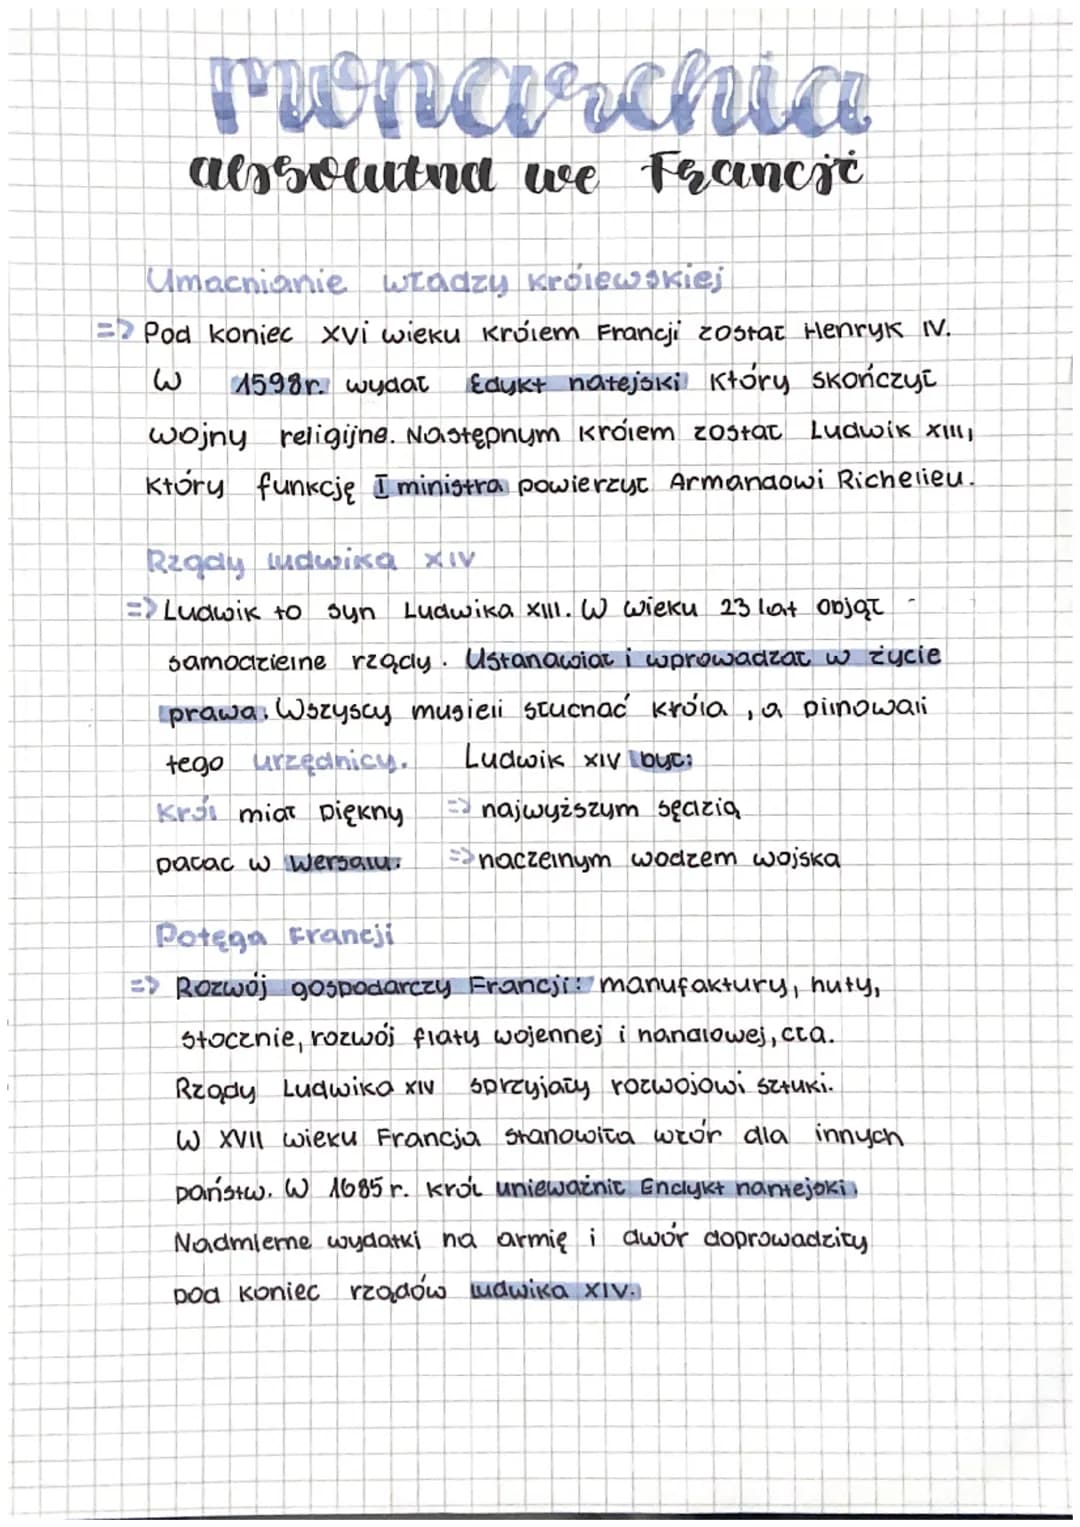 monarchia
absolutna we Francji
Umacnianie władzy królewskiej
=> Pod koniec XVI wieku królem Francji został Henryk IV.
W 1598r. wydał Edykt natejski który skończył
wojny religijne. Następnym królem został Ludwik XIII,
który funkcję I ministra powierzył Armandowi Richelieu.
Rządy Ludwika XIV
=> Ludwik to syn Ludwika XIII. W wieku 23 lat objął
samodzielne rządy. Ustanawiał i wprowadzał w życie
prawa. Wszyscy musieli słuchać króla, a pilnowali
tego urzędnicy.
Król miał piękny
pałac w Wersalu.
Ludwik XIV był:
=> najwyższym sędzią
=> naczelnym wodzem wojska
Potęga Francji
=> Rozwój gospodarczy Francji: manufaktury, huty,
stocznie, rozwój floty wojennej i handlowej, cła.
Rządy Ludwika XIV sprzyjały rozwojowi sztuki.
W XVII wieku Francja stanowiła wzór dla innych
państw. W 1685 r. król unieważnił Endykt nantejski.
Nadmierne wydatki na armię i dwór doprowadziły
pod koniec rządów Ludwika XIV.